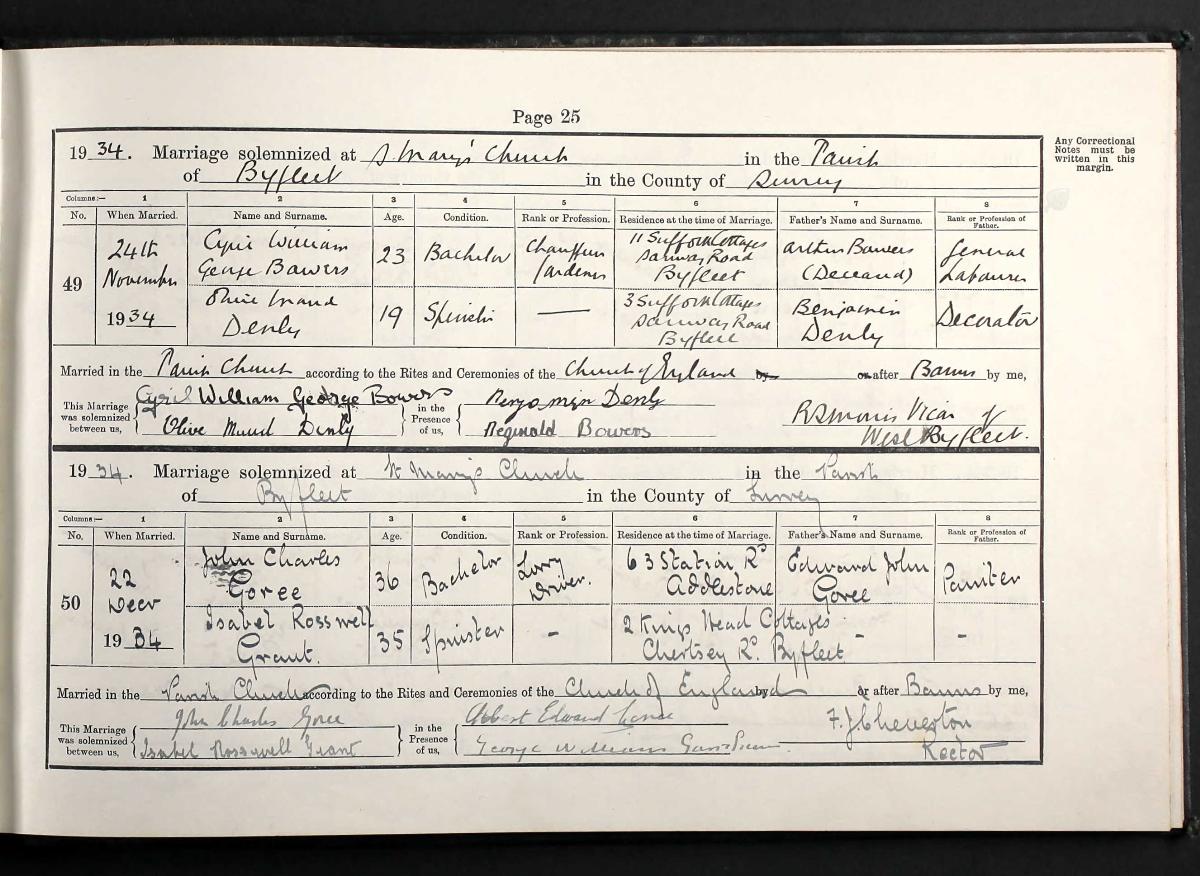 Page 25
Any Correctional
Notes must be
written in this
margin.
1934. Marriage solemnized at S. Mary's Church in the Parish
of Byfleet in the County of Surrey
Columns:— 1 2 3 4 5 6 7 8
No. When Married. Name and Surname. Age. Condition. Rank or Profession. Residence at the time of Marriage. Father's Name and Surname. Rank or Profession of Father.
49
24th
November
1934
Cyril William
George Bowers
23
Bachelor
Chauffeur
Gardener
11 Suffolk Cottages
Sanway Road
Byfleet
Arthur Bowers
(Deceased)
General
Labourer
Olive Maud
Denly
19
Spinster
—
3 Suffolk Cottages
Sanway Road
Byfleet
Benjamin
Denly
Decorator
Married in the Parish Church according to the Rites and Ceremonies of the Church of England by or after Banns by me,
This Marriage
was solemnized
between us,
Cyril William George Bowers
Olive Maud Denly
in the
Presence
of us,
Benjamin Denly
Reginald Bowers
Vicar of
West Byfleet.
1934. Marriage solemnized at St Mary's Church in the Parish
of Byfleet in the County of Surrey
Columns:— 1 2 3 4 5 6 7 8
No. When Married. Name and Surname. Age. Condition. Rank or Profession. Residence at the time of Marriage. Father's Name and Surname. Rank or Profession of Father.
50
22
Decr
1934
John Charles
Goree
36
Bachelor
Lorry
Driver.
63 Station Rd
Addlestone
Edward John
Goree
Painter
Isabel Rosswell
Grant.
35
Spinster
-
2 Kings Head Cottages
Chertsey Rd. Byfleet
-
-
Married in the Parish Church according to the Rites and Ceremonies of the Church of England by or after Banns by me,
This Marriage
was solemnized
between us,
John Charles Goree
Isabel Rosswell Grant
in the
Presence
of us,
Albert Edward
George William
F. J. Cheverton
Rector